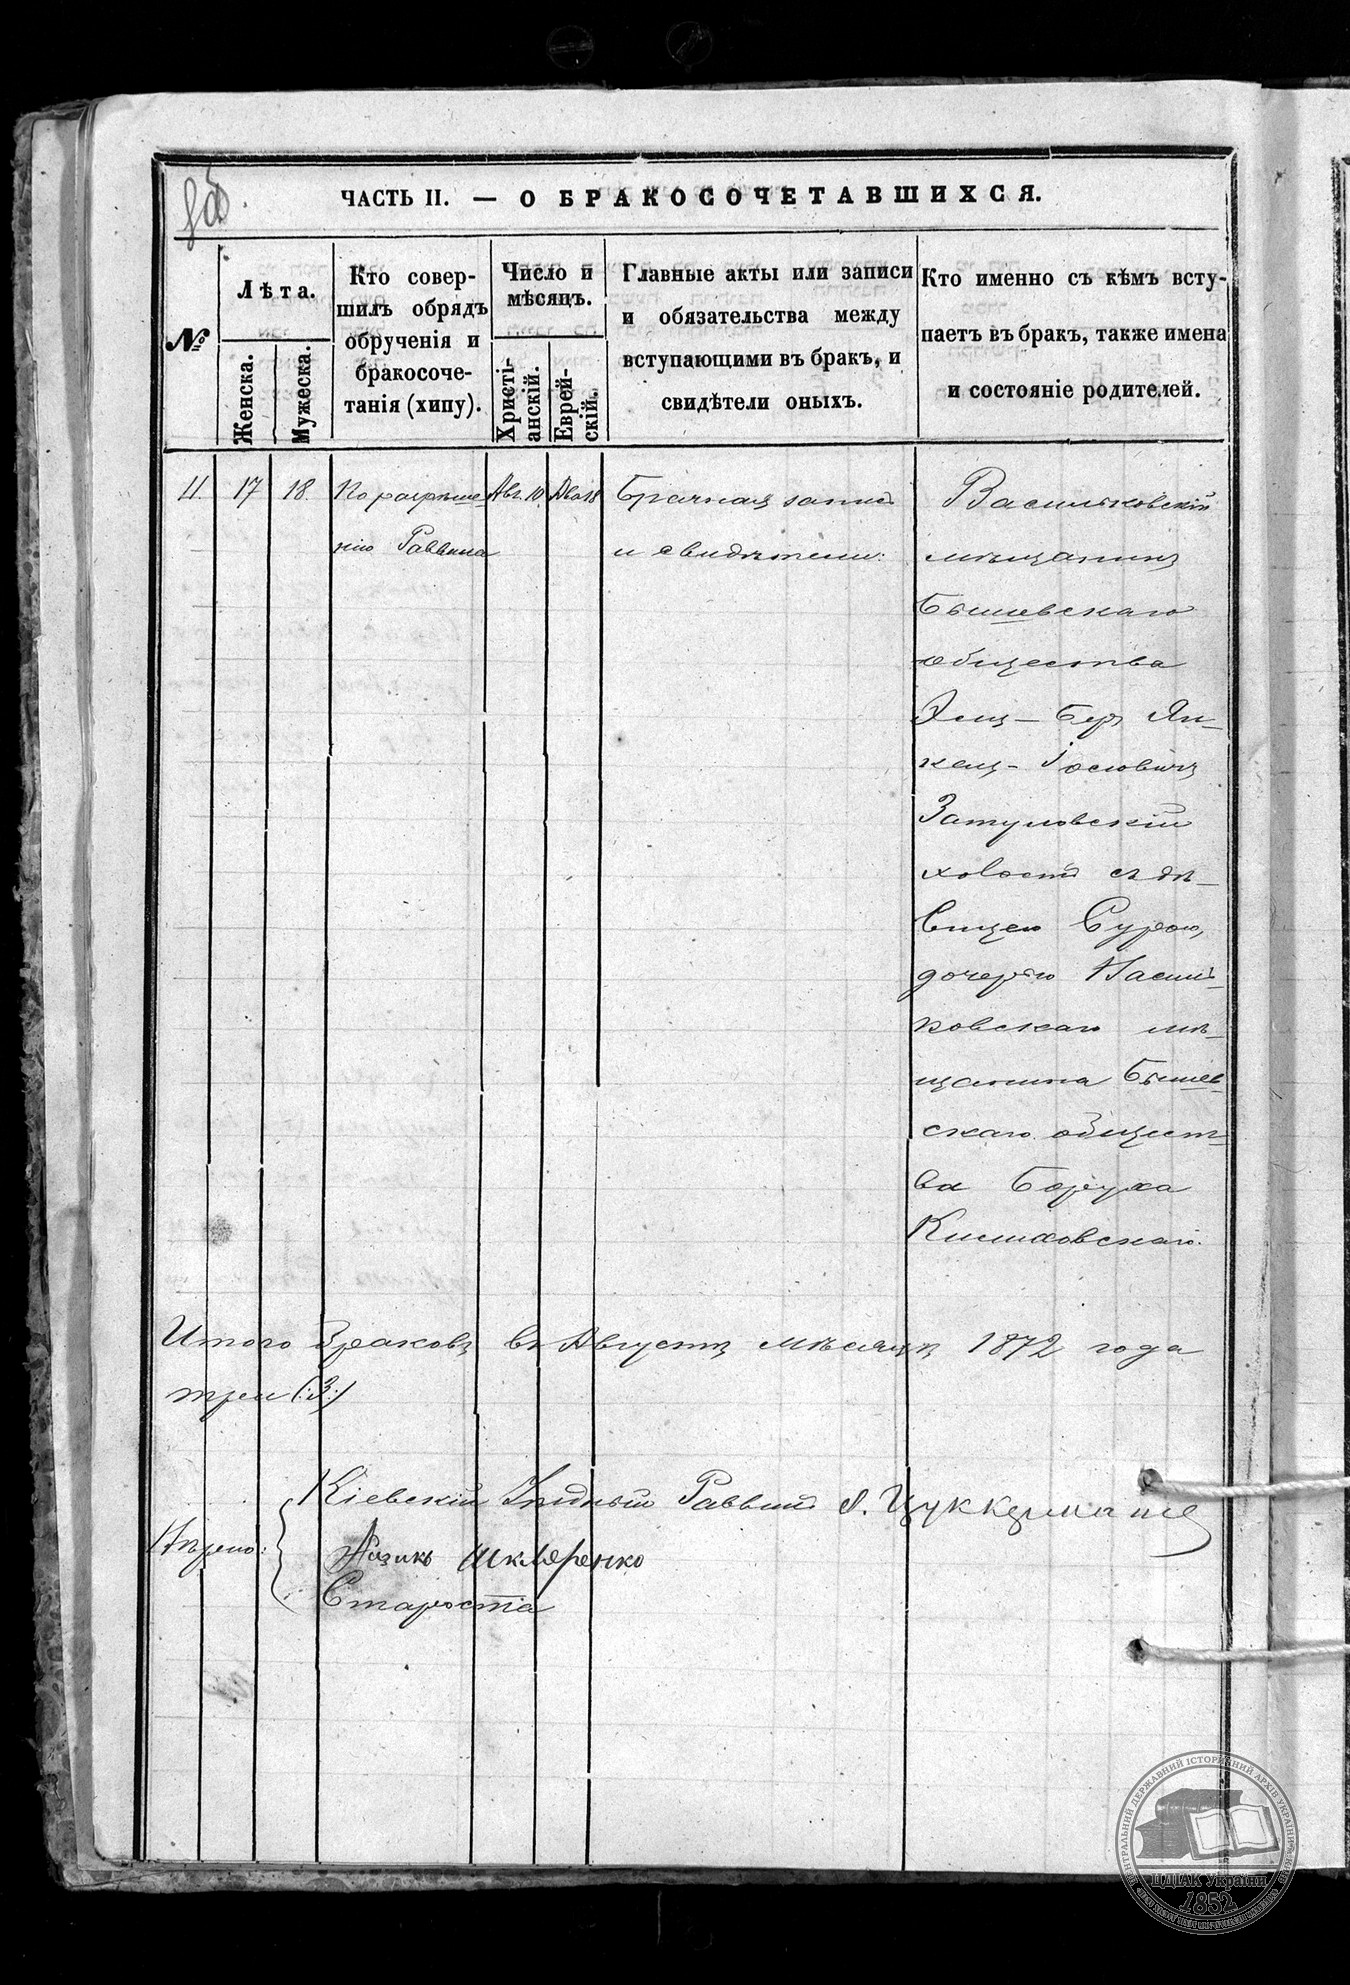 ЧАСТЬ II. — О БРАКОСОЧЕТАВШИХСЯ.
№
Лѣта.
Женска.
Мужеска.
Кто совер-
шилъ обрядъ
обрученія и
бракосоче-
танія (хипу).
Число и
мѣсяцъ.
Христі-
анскій.
Еврей-
скій.
Главные акты или записи
и обязательства между
вступающими въ бракъ, и
свидѣтели оныхъ.
Кто именно съ кѣмъ всту-
паетъ въ бракъ, также имена
и состояніе родителей.
11.
17
18.
По разрѣше
нію Раввина
Авг. 10
Ава 18
Брачная запись
и свидѣтели:
Васильковскій
мѣщанинъ
Бышевскаго
общества
Эль-Беръ Ян-
кель-Іосіовичъ
Затуловскій
холостъ съ дѣ-
вицею Сурою,
дочерью Василь-
ковскаго мѣ-
щанина Бышев
скаго общест-
ва Боруха
Итого браковъ въ Августѣ мѣсяцѣ 1872 года
три (:3:)
Вѣрно:
Кіевскій Уѣздный Раввинъ А. Цуккерманъ
Айзикъ Шкляренко
Староста
ЦЕНТРАЛЬНИЙ ДЕРЖАВНИЙ ІСТОРИЧНИЙ АРХІВ УКРАЇНИ
ЦДІАК України
1852